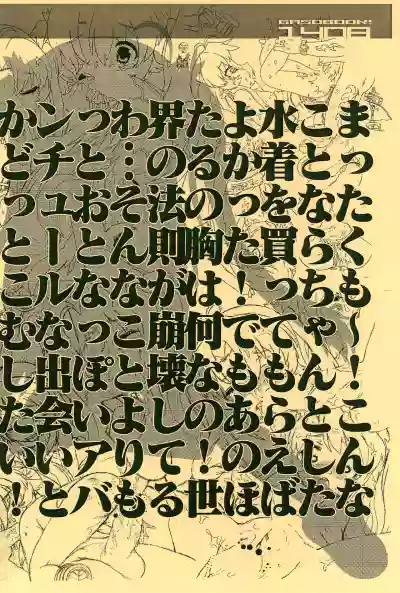 GASOBOOK!
1408
まったくも～！こんな
ことならちゃんとした
水着を買ってもらえば
よかった！でもあのほ
たるの胸は何なの！世
界の法則が崩壊してる
わ…そんなことよりも
っとおとなっぽいアバ
ンチュールな出会いと
かどっとこむしたい！